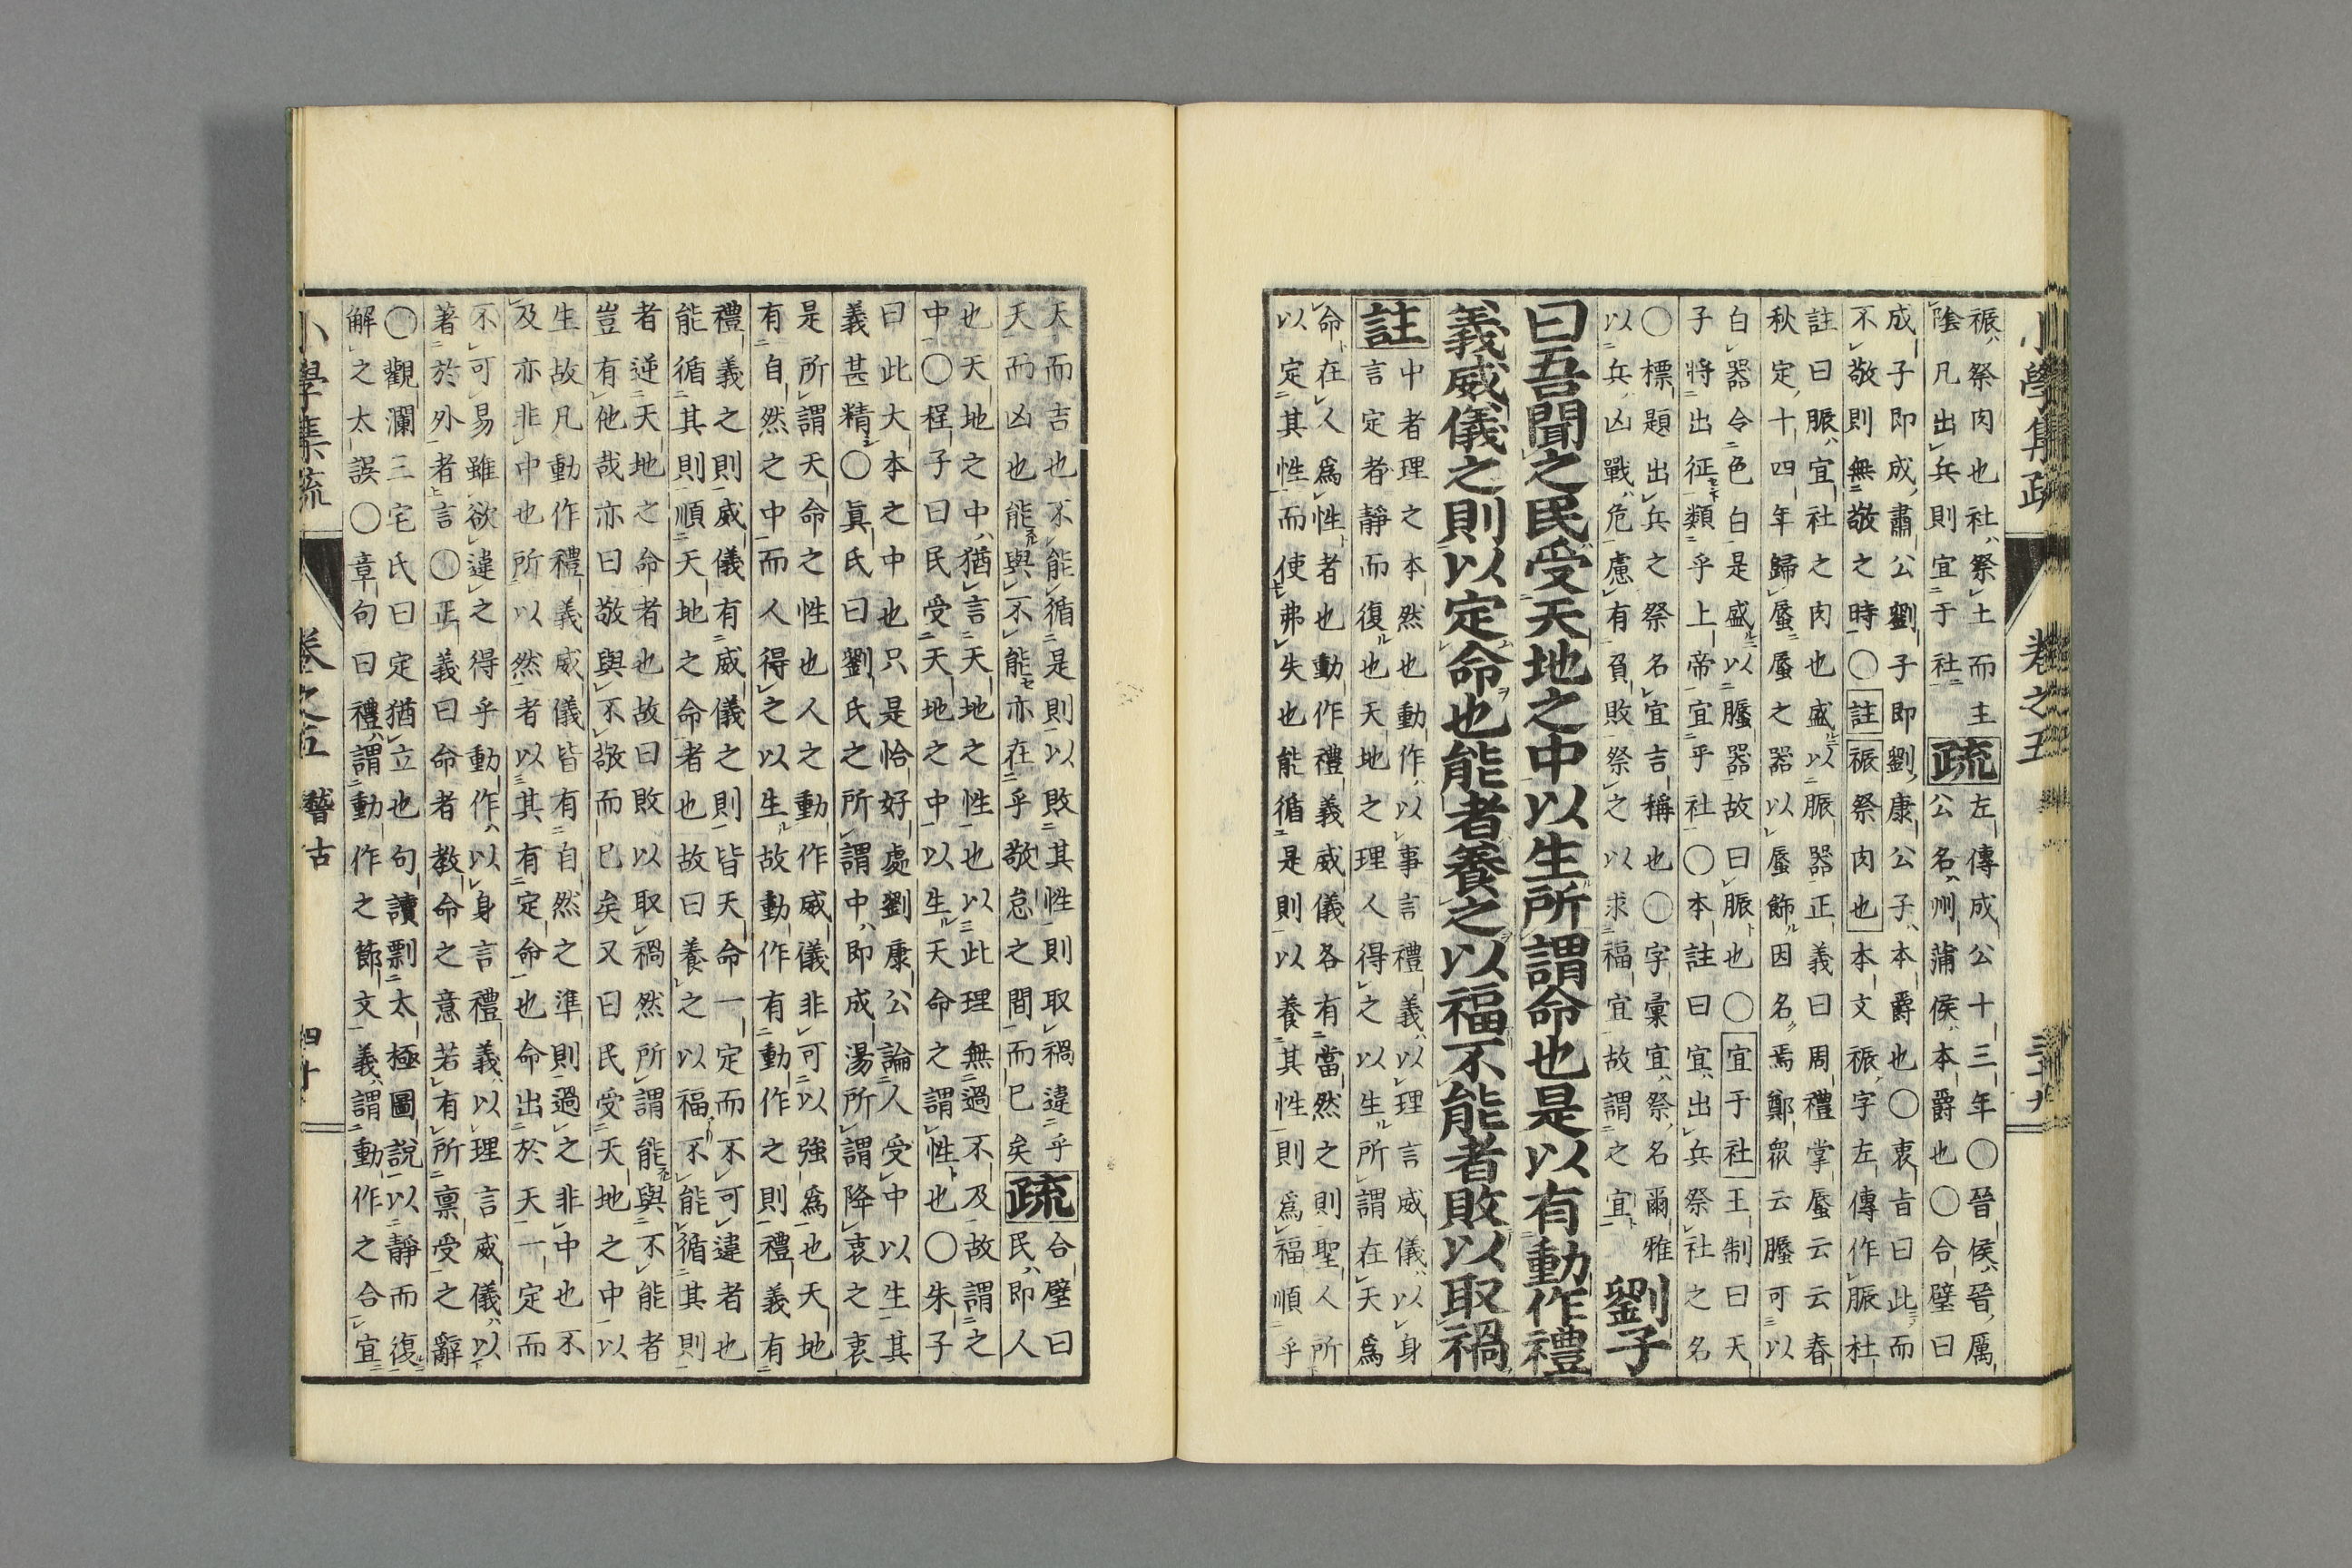 小學集疏 卷之五 三十九
裖祭肉也社祭土而主
陰凡出兵則宜于社 疏 左傳成公十三年〇晉侯晉厲
公名州蒲侯本爵也〇合璧曰
成子即成肅公劉子即劉康公子本爵也〇衷旨曰此而
不敬則無敬之時〇註裖祭肉也本文裖字左傳作脤杜
註曰脤宜社之肉也盛以脤器正義曰周禮掌蜃云云春
秋定十四年歸蜃蜃之器以蜃飾因名焉鄭眾云蜃可以
白器令色白是盛以蜃器故曰脤也〇宜于社王制曰天
子將出征類乎上帝宜乎社〇本註曰宜出兵祭社之名
〇標題出兵之祭名宜言稱也〇字彙宜祭名爾雅
以兵凶戰危慮有負敗祭之以求福宜故謂之宜 劉子
曰吾聞之民受天地之中以生所謂命也是以有動作禮
義威儀之則以定命也能者養之以福不能者敗以取禍
註 中者理之本然也動作以事言禮義以理言威儀以身
言定者靜而復也天地之理人得之以生所謂在天爲
命在人爲性者也動作禮義威儀各有當然之則聖人所
以定其性而使弗失也能循是則以養其性則爲福順乎
天而吉也不能循是則以敗其性則取禍違乎
天而凶也能與不能亦在乎敬怠之間而已矣 疏 合璧曰
民即人
也天地之中猶言天地之性也以此理無過不及故謂之
中〇程子曰民受天地之中以生天命之謂性也〇朱子
曰此大本之中也只是恰好處劉康公論人受中以生其
義甚精〇眞氏曰劉氏之所謂中即成湯所謂降衷之衷
是所謂天命之性也人之動作威儀非可以強爲也天地
有自然之中而人得之以生故動作有動作之則禮義有
禮義之則威儀有威儀之則皆天命一定而不可違者也
能循其則順天地之命者也故曰養之以福不能循其則
者逆天地之命者也故曰敗以取禍然所謂能與不能者
豈有他哉亦曰敬與不敬而已矣又曰民受天地之中以
生故凡動作禮義威儀皆有自然之準則過之非中也不
及亦非中也所以然者以其有定命也命出於天一定而
不可易雖欲違之得乎動作以身言禮義以理言威儀以
著於外者言〇正義曰命者教命之意若有所稟受之辭
〇觀瀾三宅氏曰定猶立也句讀剽太極圖說以靜而復
解之太誤〇章句曰禮謂動作之節文義謂動作之合宜
小學集疏 卷之五 稽古 四十